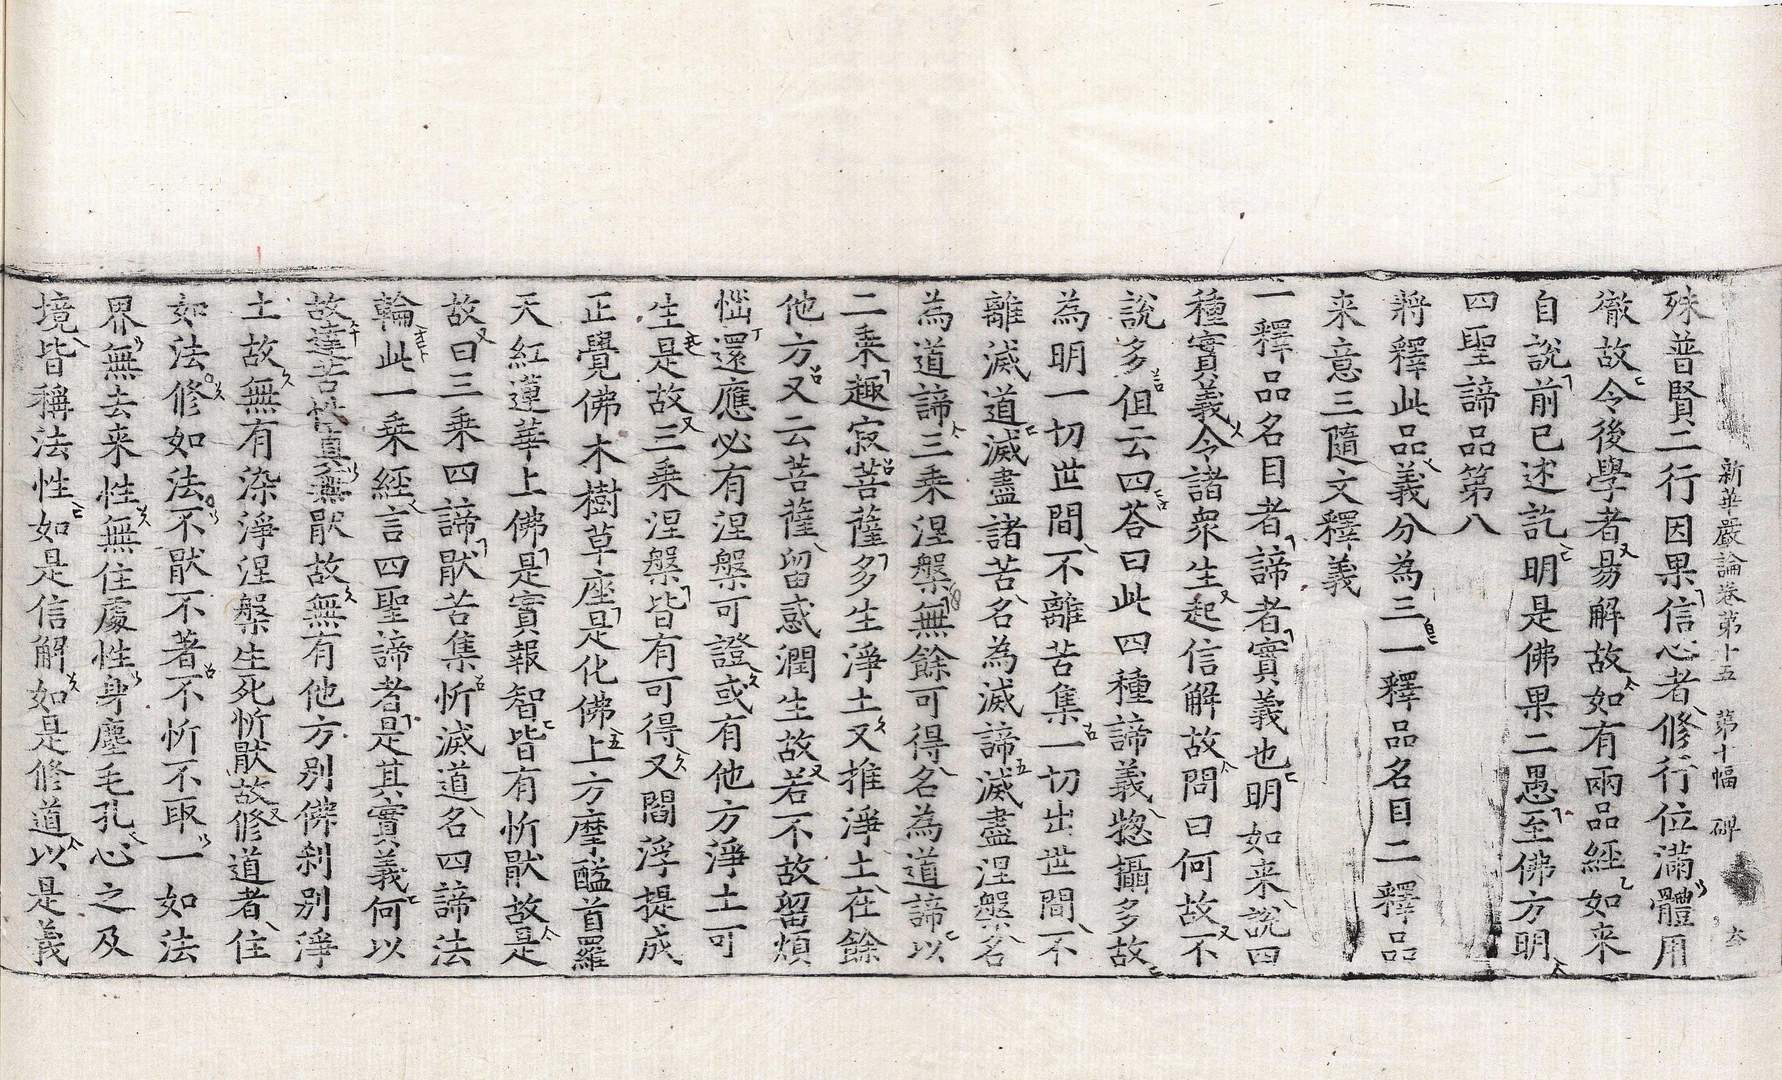 新華嚴論卷第十五　第十幅　碑
殊普賢二行因果信心者修行位滿體用
徹故令後學者易解故如有兩品經如来
自說前已述訖明是佛果二愚至佛方明
四聖諦品第八
將釋此品義分為三一釋品名目二釋品
来意三隨文釋義
一釋品名目者諦者實義也明如来說四
種實義令諸衆生起信解故問曰何故不
說多但云四荅曰此四種諦義揔攝多故
為明一切世間不離苦集一切出世間不
離滅道滅盡諸苦名為滅諦滅盡涅槃名
為道諦三乗涅槃無餘可得名為道諦以
二乗趣寂菩薩多生淨土又推淨土在餘
他方又云菩薩留惑潤生故若不故留煩
惱還應必有涅槃可證或有他方淨土可
生是故三乗涅槃皆有可得又閻浮提成
正覺佛木樹草座是化佛上方摩醯首羅
天紅蓮華上佛是實報智皆有忻猒故是
故曰三乗四諦猒苦集忻滅道名四諦法
輪此一乗經言四聖諦者是其實義何以
故達苦性真無猒故無有他方别佛刹别淨
土故無有染淨涅槃生死忻猒故修道者住
如法修如法不猒不著不忻不取一如法
界無去来性無住處性身塵毛孔心之及
境皆稱法性如是信解如是修道以是義